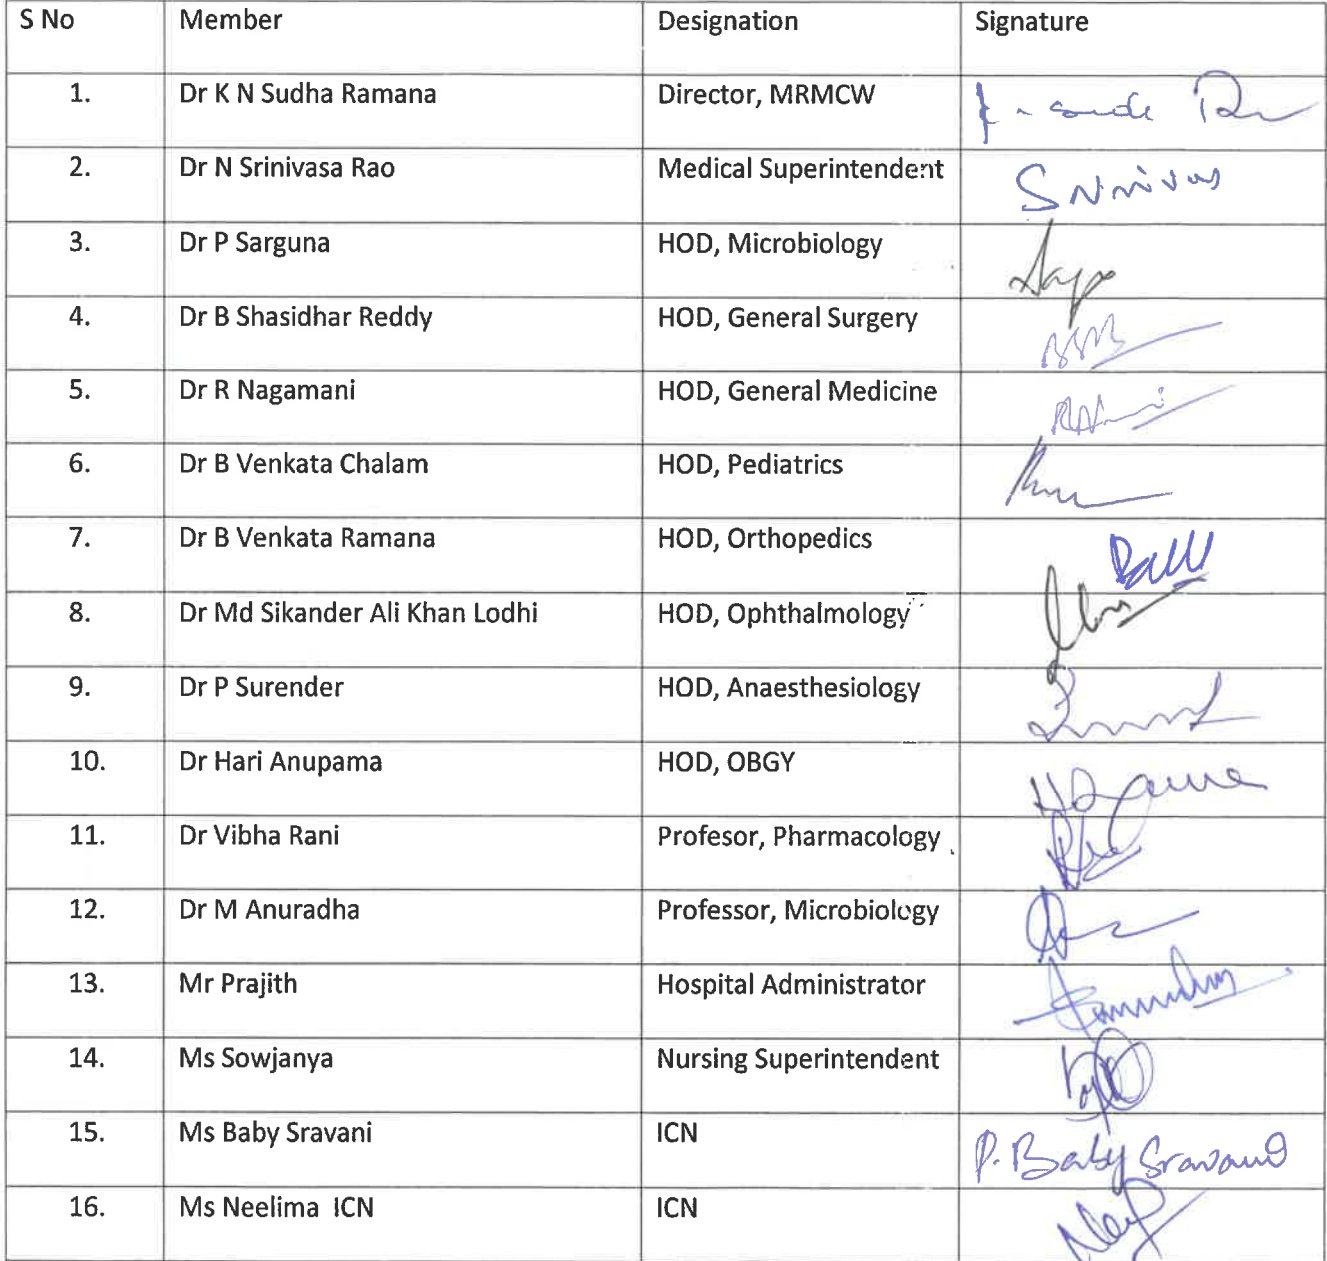 S No Member Designation Signature
1. Dr K N Sudha Ramana Director, MRMCW
2. Dr N Srinivasa Rao Medical Superintendent Srinivas
3. Dr P Sarguna HOD, Microbiology
4. Dr B Shasidhar Reddy HOD, General Surgery
5. Dr R Nagamani HOD, General Medicine
6. Dr B Venkata Chalam HOD, Pediatrics
7. Dr B Venkata Ramana HOD, Orthopedics
8. Dr Md Sikander Ali Khan Lodhi HOD, Ophthalmology
9. Dr P Surender HOD, Anaesthesiology
10. Dr Hari Anupama HOD, OBGY
11. Dr Vibha Rani Profesor, Pharmacology
12. Dr M Anuradha Professor, Microbiology
13. Mr Prajith Hospital Administrator
14. Ms Sowjanya Nursing Superintendent
15. Ms Baby Sravani ICN P. Baby Sravani
16. Ms Neelima ICN ICN